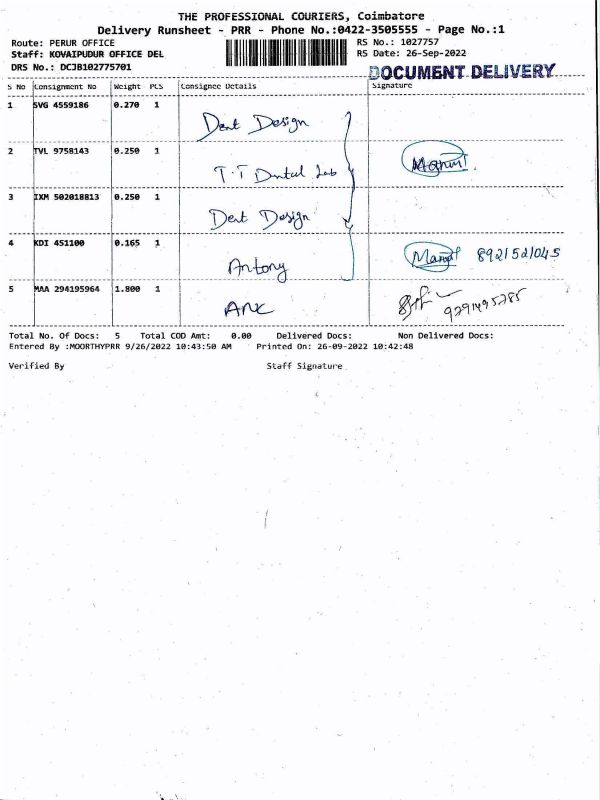 THE PROFESSIONAL COURIERS, Coimbatore
Delivery Runsheet - PRR - Phone No.:0422-3505555 - Page No.:1
Route: PERUR OFFICE RS No.: 1027757
Staff: KOVAIPUDUR OFFICE DEL RS Date: 26-Sep-2022
DRS No.: DCJB102775701 DOCUMENT DELIVERY
S No Consignment No Weight PCS Consignee Details Signature
1 SVG 4559186 0.270 1
Dent Design
2 TVL 9758143 0.250 1
T.T Dental Lab
3 IXM 502018813 0.250 1
Dent Design
4 KDI 451100 0.165 1
Antony 8921521045
5 MAA 294195964 1.800 1
Total No. Of Docs: 5 Total COD Amt: 0.00 Delivered Docs: Non Delivered Docs:
Entered By :MOORTHYPRR 9/26/2022 10:43:50 AM Printed On: 26-09-2022 10:42:48
Verified By Staff Signature